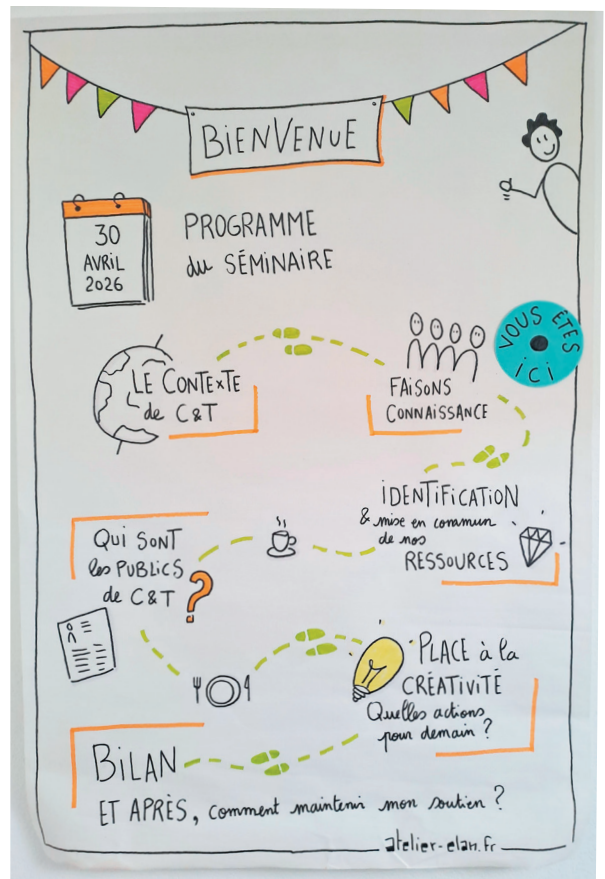 BIENVENUE
30
AVRIL
2026
PROGRAMME
du SÉMINAIRE
LE CONTEXTE
de C&T
FAISONS
CONNAISSANCE
VOUS ÊTES
ICI
IDENTIFICATION
& mise en commun
de nos
RESSOURCES
QUI SONT
les PUBLICS
de C&T ?
PLACE à la
CRÉATIVITÉ
Quelles actions
pour demain ?
BILAN
ET APRÈS, comment maintenir mon soutien ?
atelier-elan.fr